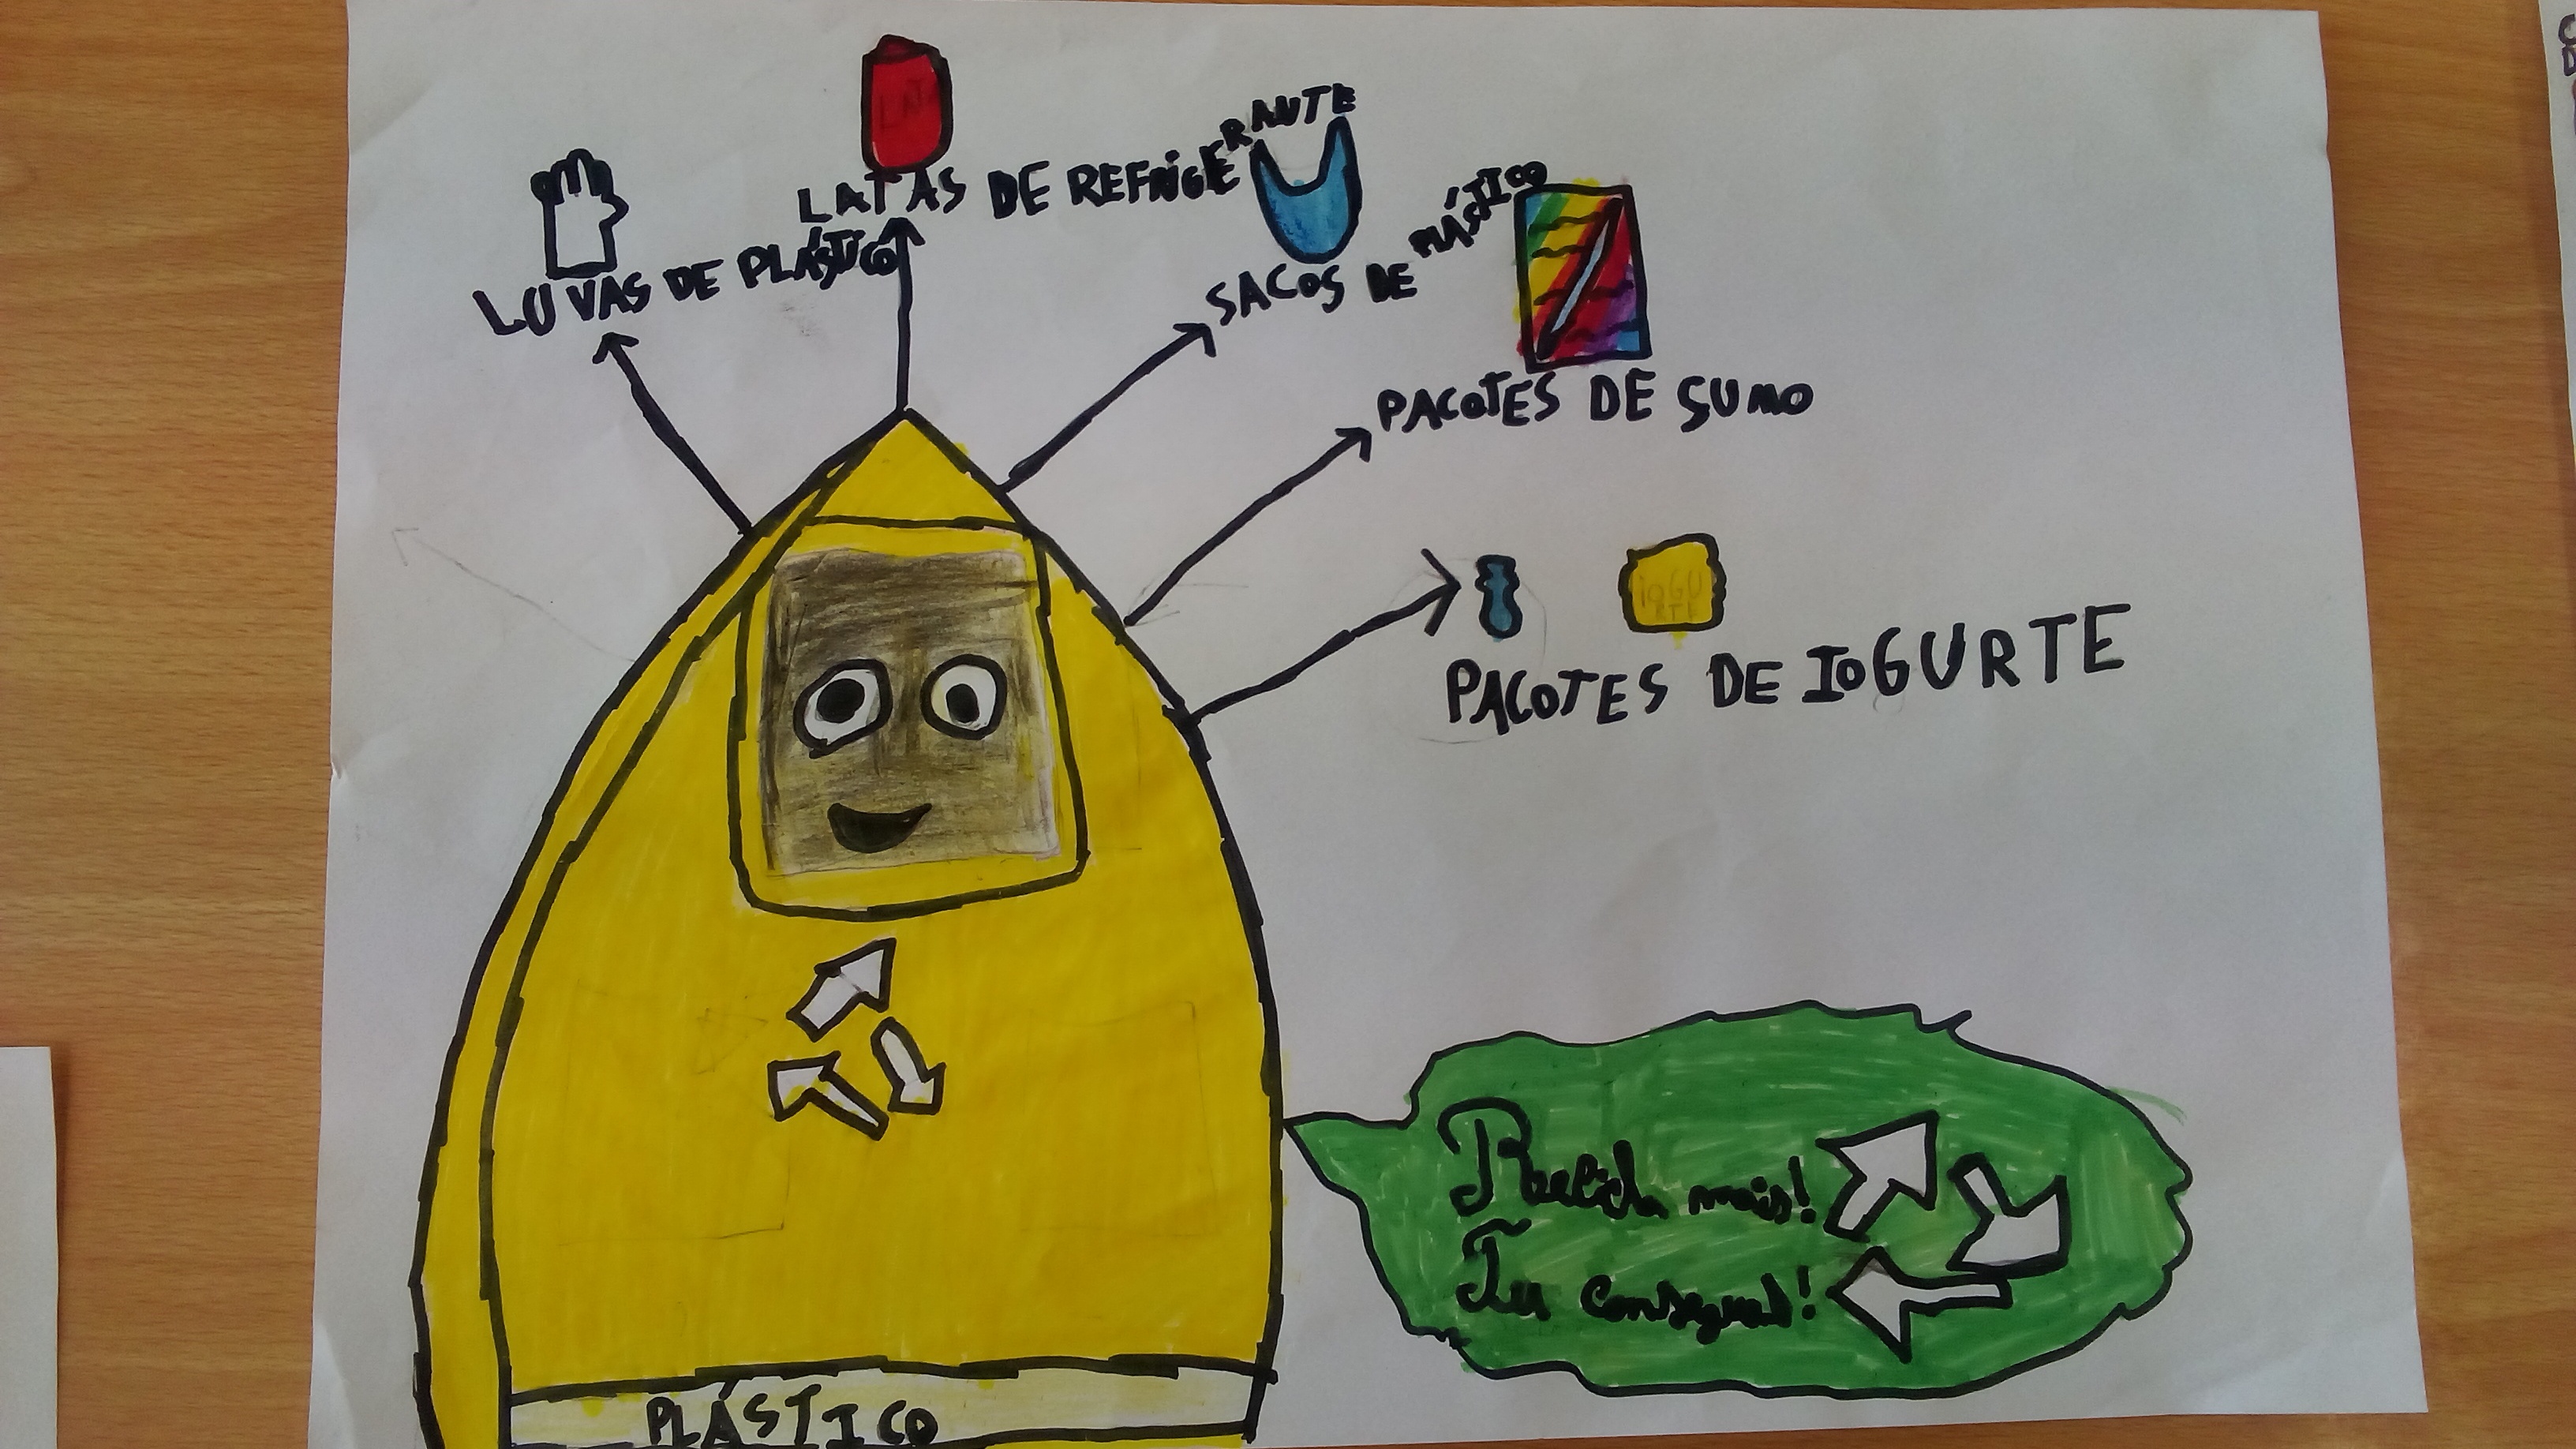 LATA
LATAS DE REFRIGERANTE
LUVAS DE PLÁSTICO
SACOS DE PLÁSTICO
PACOTES DE SUMO
IOGURTE
PACOTES DE IOGURTE
Recicla mais!
Tu consegues!
PLÁSTICO